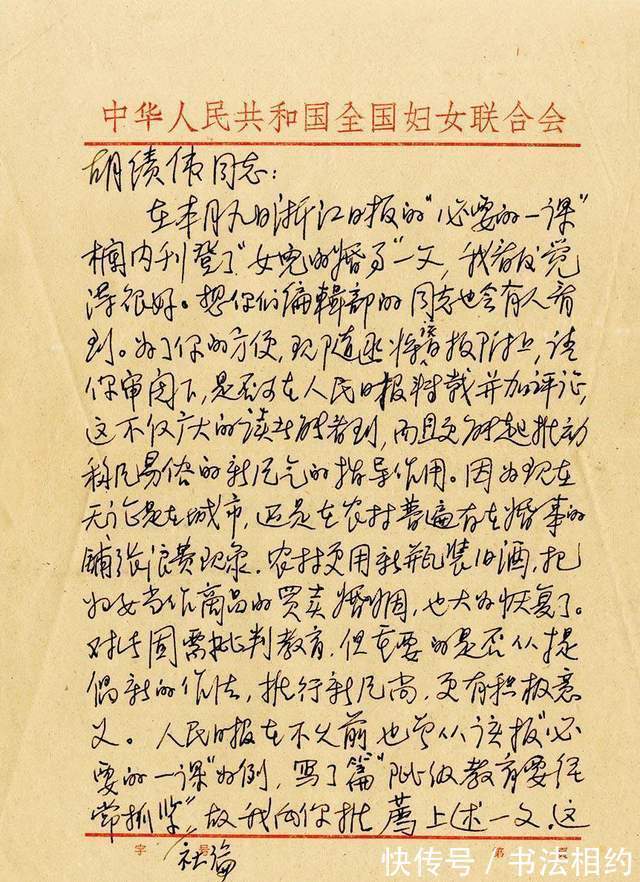 中华人民共和国全国妇女联合会
胡绩伟同志：
在本月九日浙江日报的"必要的一课"
栏内刊登了"女儿的婚事"一文，我看后觉
得很好。想你们编辑部的同志也会有人看
到。为了你的方便，现随函将该报附上，请
你审阅下，是否可在人民日报转载并加评论，
这不仅广大的读者能看到，而且更能起推动
移风易俗的新风气的指导作用。因为现在
无论是在城市，还是在农村普遍存在婚事的
铺张浪费现象。农村更用新瓶装旧酒，把
妇女当作商品的买卖婚姻，也大为恢复了。
对此固需批判教育，但重要的是否从提
倡新的作法，推行新风尚，更有积极意
义。人民日报在不久前也曾从该报"必
要的一课"为例，写了篇"阶级教育要经
常抓紧"社论，故我向你推荐上述一文。这
字 号 第 页
快传号／书法相约